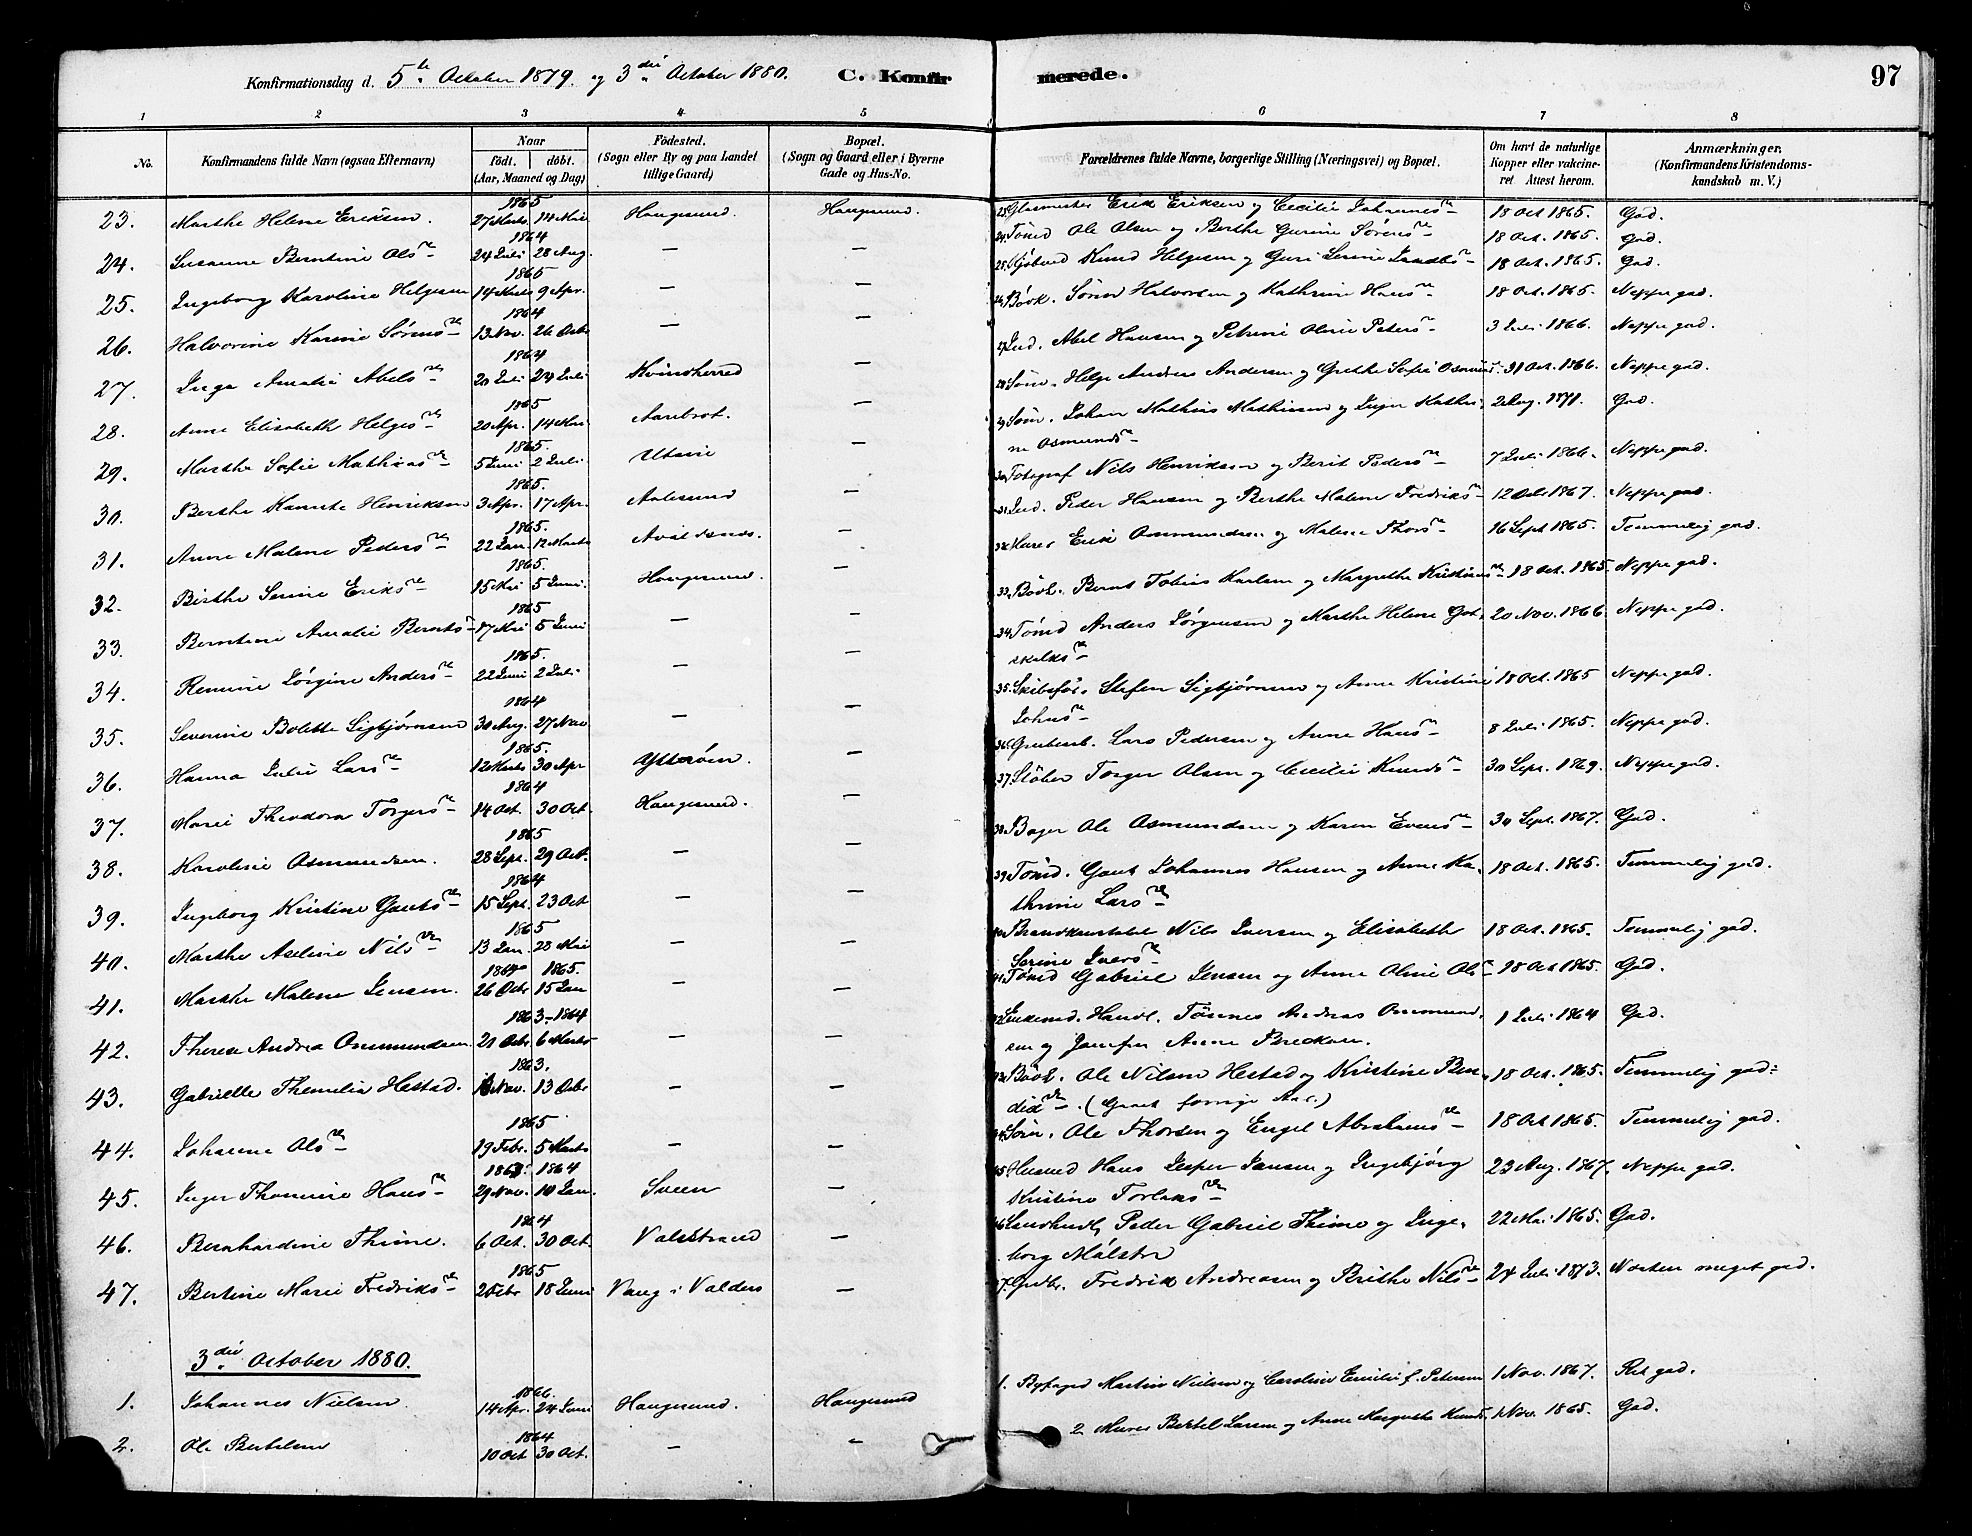 Konfirmationsdag d. 5te October 1879. og 3die October 1880. C. Konfir merede. 97
1 2 3 4 5 6 7 8
No. Konfirmandens fulde Navn (ogsaa Efternavn) Naar født. døbt. (Aar, Maaned og Dag) Fødested. (Sogn eller By og paa Landet tillige Gaard) Bopæl. (Sogn og Gaard eller i Byerne Gade og Hus-No. Forældrenes fulde Navne, borgerlige Stilling (Næringsvei) og Bopæl. Om havt de naturlige Kopper eller vakcineret. Attest herom. Anmærkninger. (Konfirmandens Kristendomskundskab m. V.)
23. Marthe Helene Eriksen. 1865 27 Marts 14 Mai Haugesund. Haugesund. 23. Glasmester Erik Eriksen og Cecilie Johannes 18 Oct 1865. God.
24. Susanne Berntine Ols 1864 24 Juli 28 Aug. — — 24. Tømd Ole Olsen og Berthe Gurine Sørens 18 Oct. 1865. God.
25. Ingeborg Karoline Helgesen 1865 14 Marts 9 Apr. — — 25. Knud Helgesen og Guri Serine 18 Oct. 1865. God.
26. Halvorine Karine Sørens 1864 13 Nov. 26 Decbr — — 26. Bødk. Søren Halvorsen og Kathrine Hans 18 Oct. 1865. Neppe god.
27. Inga Amalie Abels 1864 20 Juli 24 Juli Kvinsherred — 27. Ind. Abel Hansen og Petrine Oline Peters 3 Juli 1866. Neppe god.
28. Anne Elisabeth Helges 1865 20 Apr. 14 Mai Aarebrot. — 28. Søm. Helge Andreas Andersen og Grethe Sofie Osmunds 31 Oct. 1866. Neppe god.
29. Marthe Sofie Mathias 1865. 5 Juni 2 Juli Utsire — 29. Søm. Johan Mathias Mathiasen og Inger Kathrine Osmunds 2 Aug. 1871. God.
30. Berthe Hansete Henriksen 1865. 3 Apr. 17 Apr. Aalesund — 30. Fotograf Nils Henriksen og Berit Peders 7 Juli 1866. Neppe god.
31. Anne Malene Peders 1865. 22 Jan. 12 Marts Avaldsnes. — 31. Ind. Peder Hansen og Berthe Malene Fredriks 12 Oct 1867. Neppe god.
32. Birthe Serine Eriks 1865. 15 Mai 5 Juni. Haugesund. — 32. Murer Erik Ommundsen og Malene Thors 16 Sept 1865. Temmelig god.
33. Berntine Amalie Bernts 1865 17 Mai 5 Juni — — 33. Bødk. Bernt Tobias Karlsen og Margrethe Kristines 18 Oct. 1865. Neppe god.
34. Remine Jørgine Anders 1865. 22 Juni 2 Juli — — 34. Tømd Anders Jørgensen og Marthe Helene Gotskalks 20 Nov. 1866. Neppe god.
35. Severine Bolette Sigbjørnsen 1864 30 Aug. 27 Nov — — 35. Skibsfør. Stefen Sigbjørnsen og Anne Kristine Johns 18 Oct. 1865 Neppe god.
36. Hanna Julie Lars 1865. 12 Marts 30 Apr Ytterøen. — 36. Grubearb. Lars Pedersen og Anne Hans 8 Juli 1865. Neppe god.
37. Marie Theodora Torgers 1864 14 Oct. 30 Oct. Haugesund. — 37. Støber Torger Olsen og Cecilie Knuds 30 Sept. 1869. Neppe god.
38. Karoline Osmundsen. 1865 28 Sept. 29 Oct. — — 38. Bager Ole Osmundsen og Karen Evens 30 Sept. 1867. God.
39. Ingeborg Kristine Gauts 1864 15 Sept. 23 Oct — — 39. Tømd. Gaut Johannes Hansen og Anne Kathrine Lars 18 Oct. 1865. Temmelig god.
40. Marthe Aseline Nils 1865 13 Jan. 28 Mai — — 40. Brandkonstabel Nils Iversen og Elisabeth Serine Ivers 18 Oct. 1865. Temmelig god.
41. Marthe Malene Jensen. 1864 1865. 26 Decbr 15 Jan — — 41. Tømd Gabriel Jensen og Anne Oline Ols 18 Oct 1865. God.
42. Therese Andrea Ommundsen 1863-1864 21 Decbr 6 Marts — — 42. Enkemd. Handl. Tønnes Andreas Ommundsen og Jomfru Anne Bredesen. 1 Juli 1864 God.
43. Gabrielle Themelia Hestad. 1863. Nov. 13 Decbr — — 43. Bødk. Ole Nilsen Hestad og Kristine Bendix. (Gaaet forrige Aar.) 18 Oct. 1865. Temmelig god.
44. Johanne Ols 1865 19 Febr. 5 Marts — — 44. Søm. Ole Thorsen og Engel Abrahams 18 Oct 1865. Temmelig god.
45. Inger Thomine Hans 1863. 1864 29 Nov. 10 Jan. Sveen — 45. Husmd Hans Jesper Jansen og Ingebjørg Kristine Torlaks 23 Aug. 1867. Neppe god.
46. Bernhardine Thime. 1864 6 Oct. 30 Oct. Valestrand — 46. Landhandl. Peder Gabriel Thime og Ingeborg Målstre 22 Mai 1865. God.
47. Bertine Marie Fredriks 1865 2 Febr 18 Juni Vang i Valders — 47. Gudbr. Fredrik Andreasen og Brithe Nils 24 Juli 1873. Næsten meget god.
3die October 1880.
1. Johannes Nielsen. 1866. 14 Apr. 24 Juni Haugesund. Haugesund 1. Byfoged Martin Nielsen og Caroline Emilie f. Petersen 1 Nov. 1867. Ret god.
2. Ole Bertelsen 1864 10 Oct 30 Oct. — — 2. Murer Bertel Larsen og Anne Margrethe Knuds 1 Nov. 1865. God.